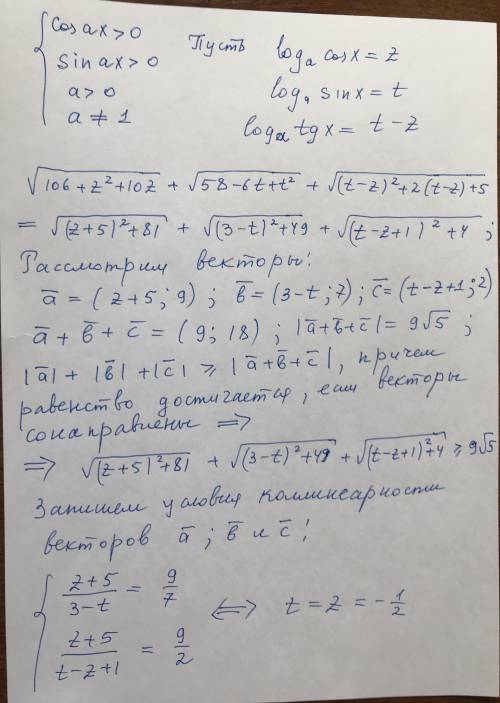 { cos ax > 0
sin ax > 0
a > 0
a ≠ 1
Пусть log_a cos x = z
log_a sin x = t
log_a tg x = t - z
√(106 + z² + 10z) + √(58 - 6t + t²) + √((t-z)² + 2(t-z) + 5)
= √((z+5)² + 81) + √((3-t)² + 49) + √((t-z+1)² + 4) ;
Рассмотрим векторы:
a̅ = (z+5; 9) ; b̅ = (3-t; 7) ; c̅ = (t-z+1; 2)
a̅ + b̅ + c̅ = (9; 18) ; |a̅+b̅+c̅| = 9√5 ;
|a̅| + |b̅| + |c̅| ⩾ |a̅+b̅+c̅|, причем
равенство достигается, если векторы
сонаправлены ⟹
⟹ √((z+5)² + 81) + √((3-t)² + 49) + √((t-z+1)² + 4) ⩾ 9√5
Запишем условия коллинеарности
векторов a̅ ; b̅ и c̅ :
{ (z+5)/(3-t) = 9/7
(z+5)/(t-z+1) = 9/2
⟺ t = z = -1/2